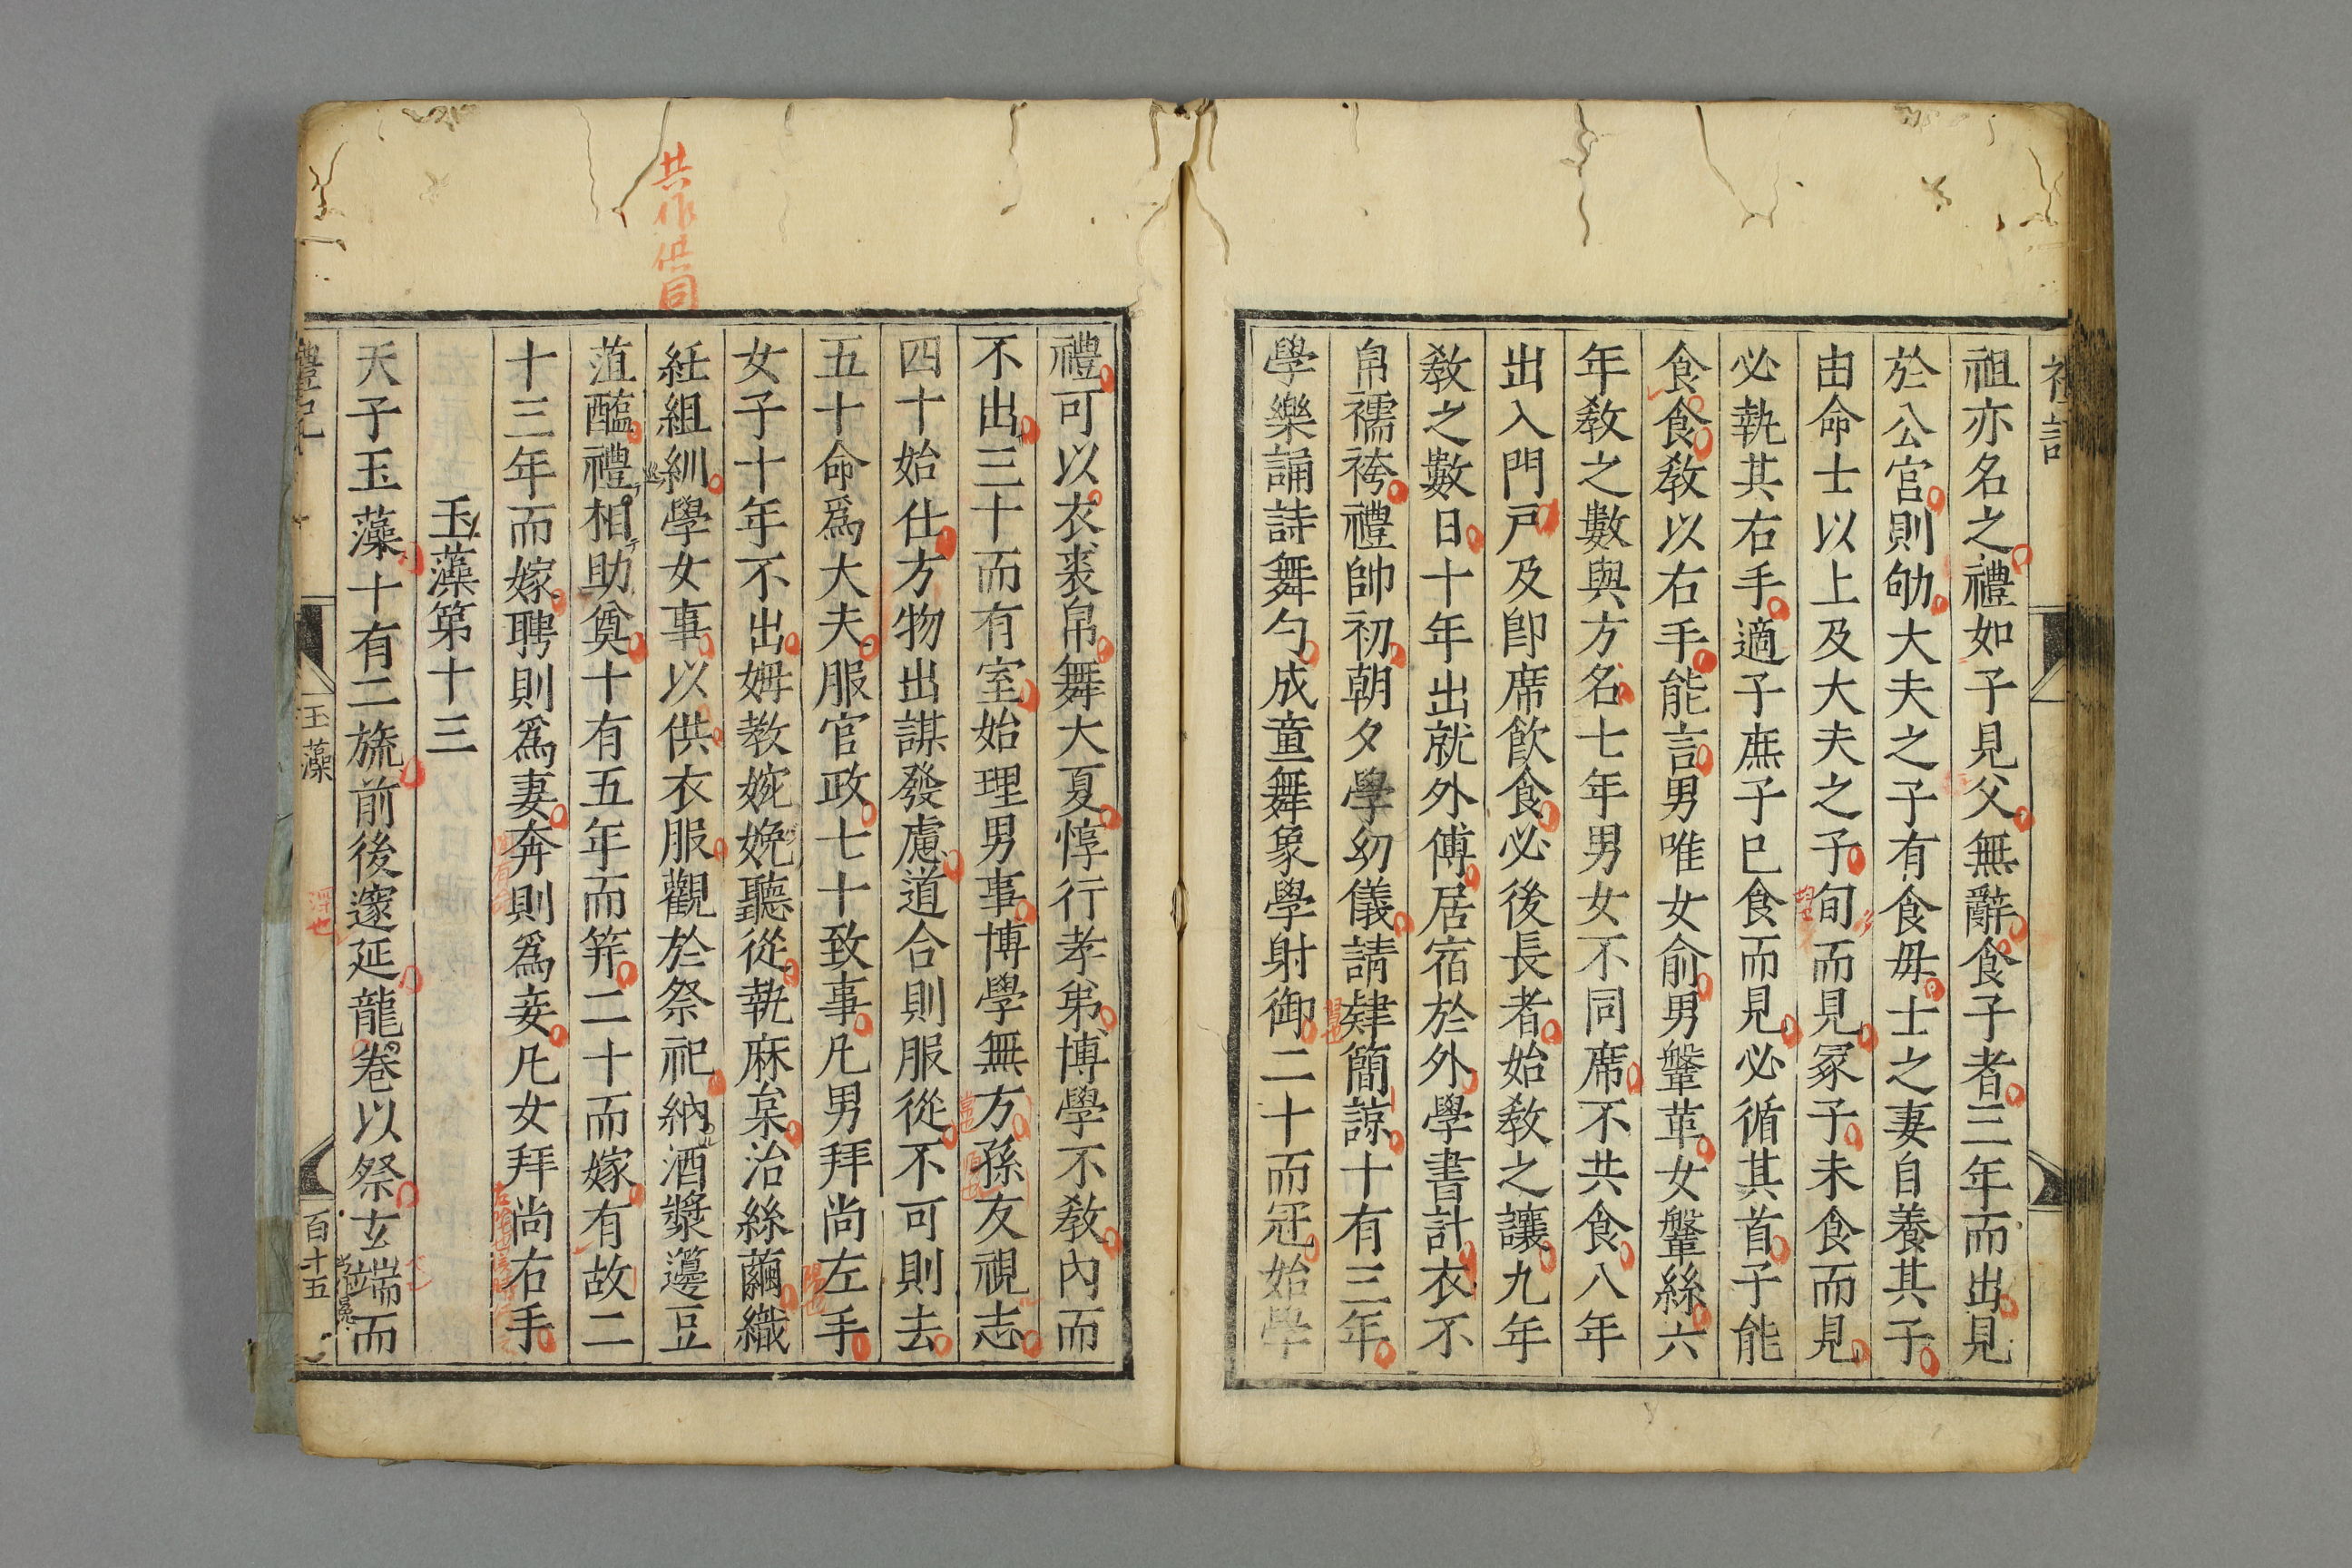 禮記
祖亦名之禮如子見父無辭食子者三年而出見
於公宮則劬大夫之子有食母士之妻自養其子
由命士以上及大夫之子旬而見冢子未食而見
必執其右手適子庶子已食而見必循其首子能
食食敎以右手能言男唯女俞男鞶革女鞶絲六
年敎之數與方名七年男女不同席不共食八年
出入門戸及卽席飮食必後長者始敎之讓九年
敎之數日十年出就外傅居宿於外學書計衣不
帛襦袴禮帥初朝夕學幼儀請肄簡諒十有三年
學樂誦詩舞勺成童舞象學射御二十而冠始學
禮可以衣裘帛舞大夏惇行孝弟博學不敎內而
不出三十而有室始理男事博學無方孫友視志
四十始仕方物出謀發慮道合則服從不可則去
五十命爲大夫服官政七十致事凡男拜尚左手
女子十年不出姆敎婉娩聽從執麻枲治絲繭織
紝組紃學女事以供衣服觀於祭祀納酒漿籩豆
菹醢禮相助奠十有五年而筓二十而嫁有故二
十三年而嫁聘則爲妻奔則爲妾凡女拜尚右手
玉藻第十三
天子玉藻十有二旒前後邃延龍卷以祭玄端而
禮記
玉藻
百十五
共作供同
陽也
浮也